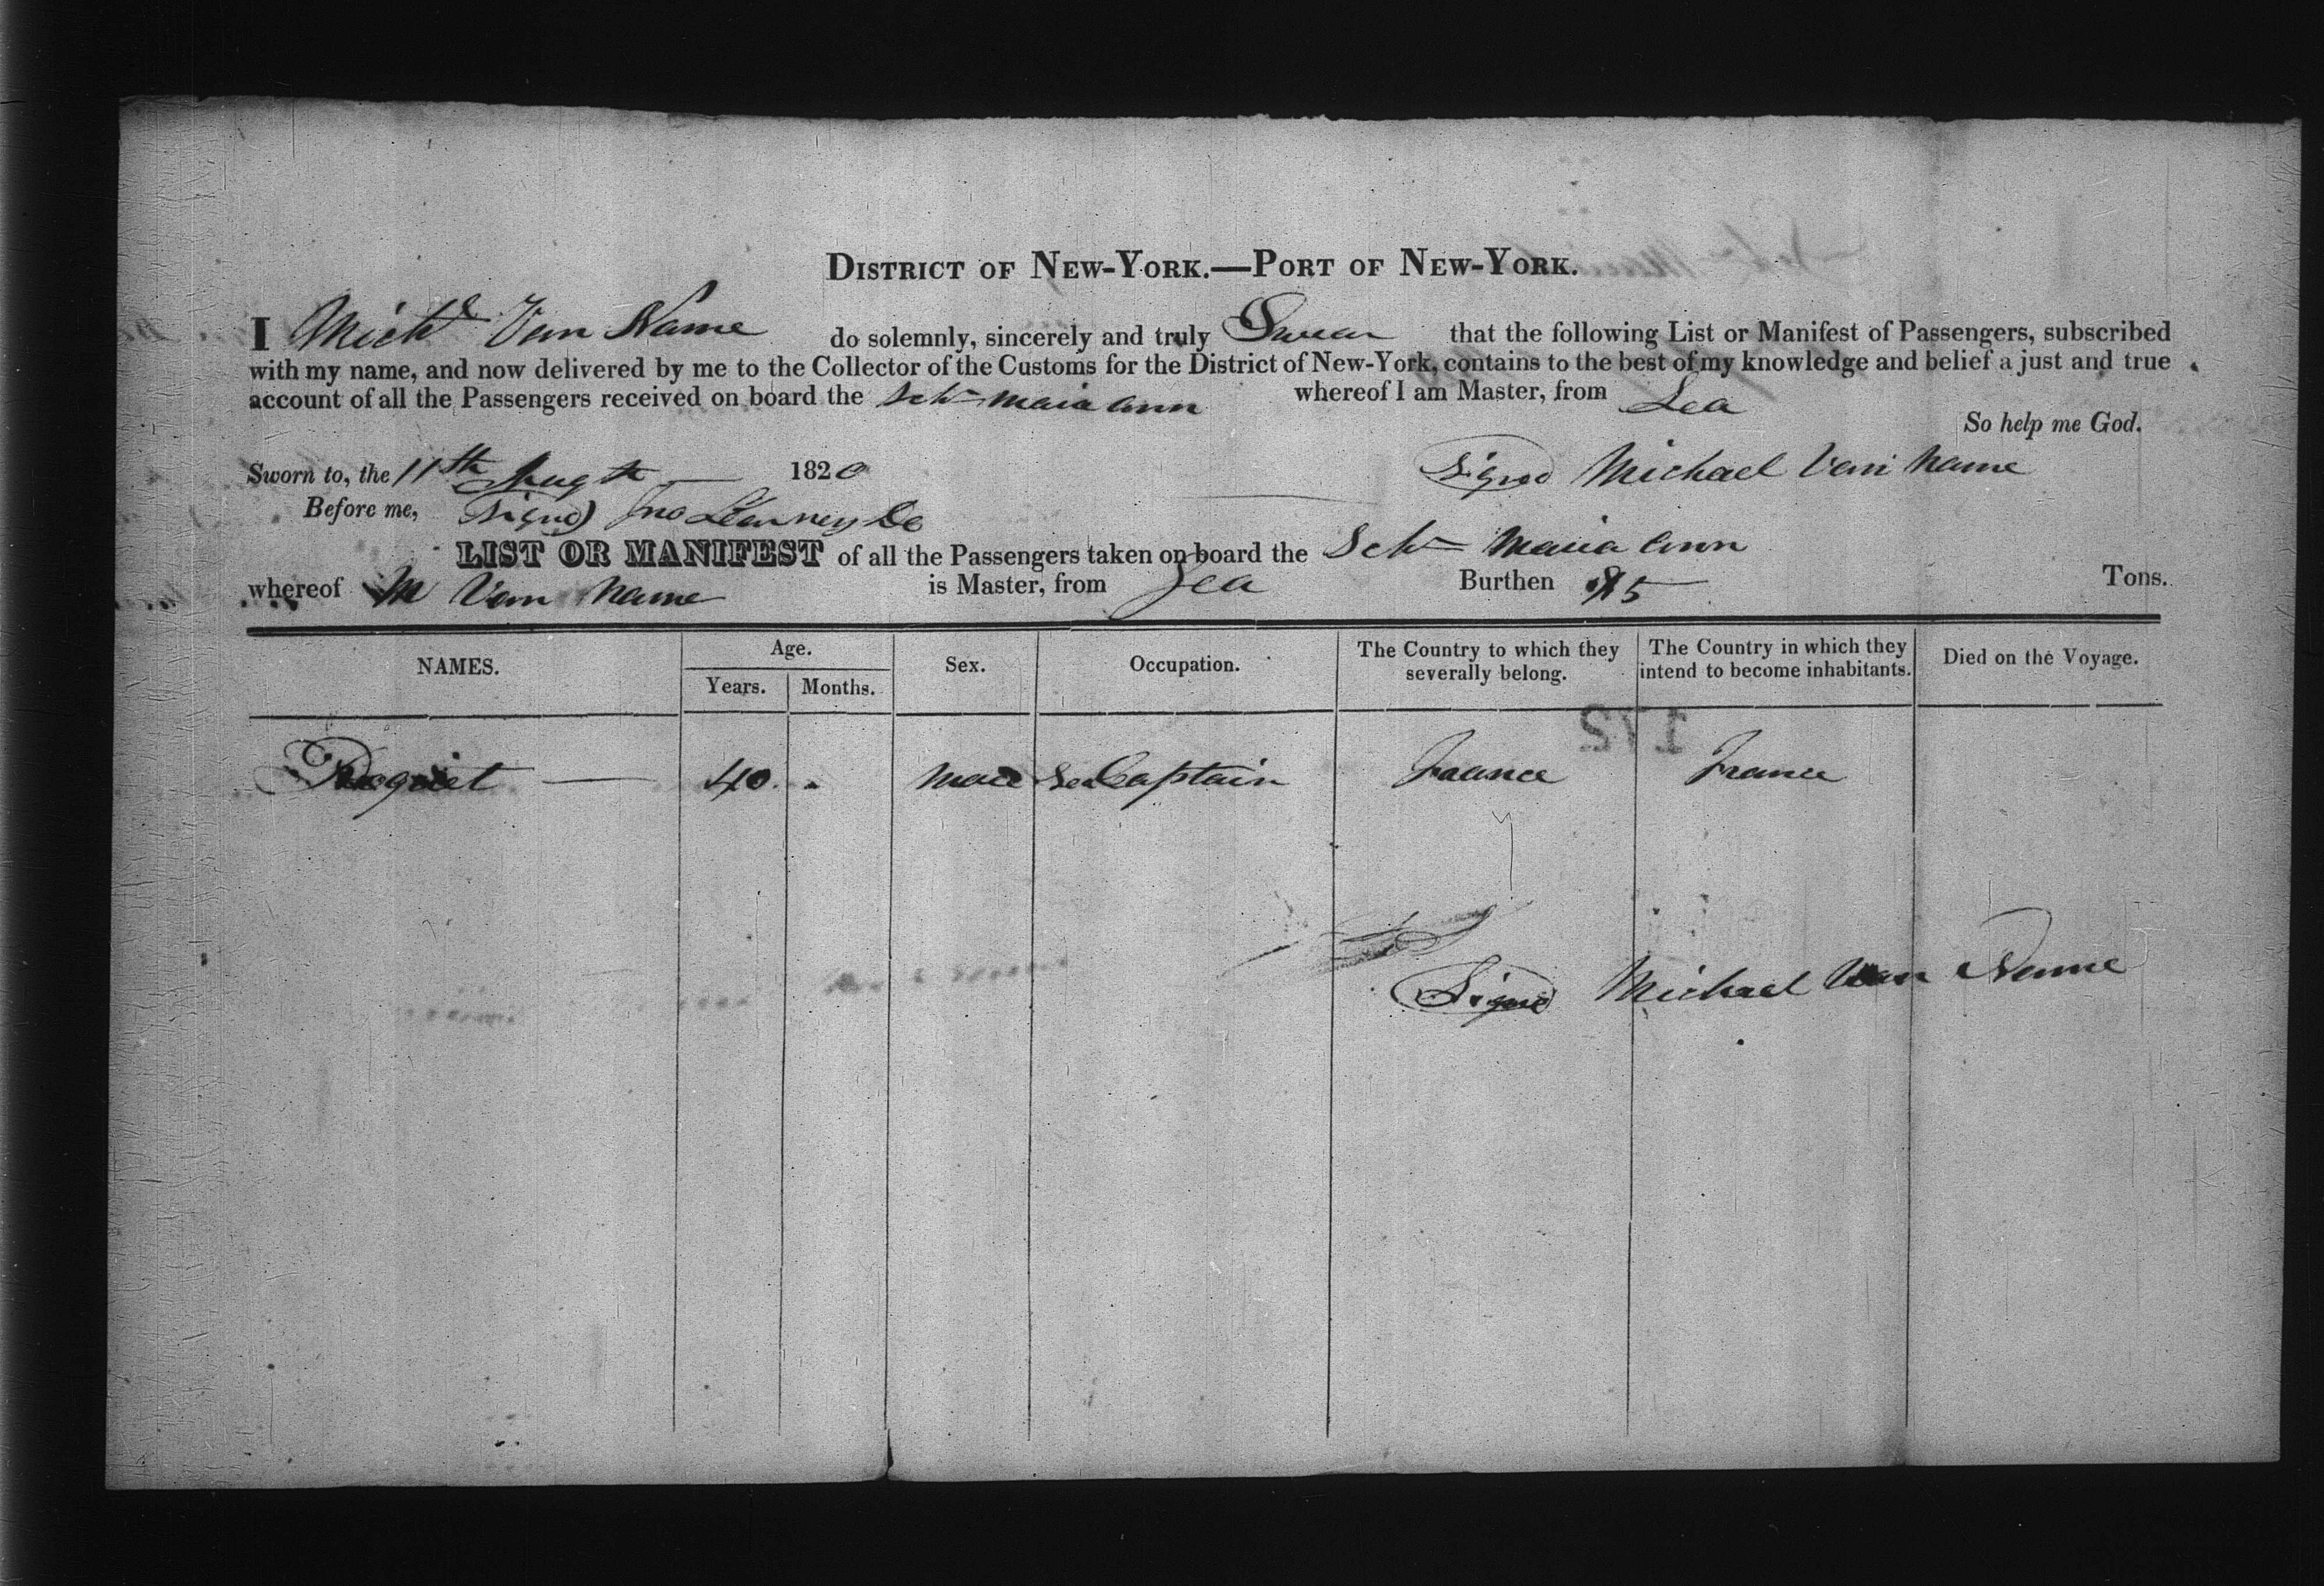 DISTRICT OF NEW-YORK.—PORT OF NEW-YORK.
I Michl Van Name do solemnly, sincerely and truly Swear that the following List or Manifest of Passengers, subscribed
with my name, and now delivered by me to the Collector of the Customs for the District of New-York, contains to the best of my knowledge and belief a just and true
account of all the Passengers received on board the Schr Maria Ann whereof I am Master, from Sea
So help me God.
Sworn to, the 11th Augt 1820 Signed Michael Van Name
Before me, Signed Jno
LIST OR MANIFEST of all the Passengers taken on board the Schr Maria Ann
whereof M Van Name is Master, from Sea Burthen 85 Tons.
NAMES. Age. Years. Months. Sex. Occupation. The Country to which they severally belong. The Country in which they intend to become inhabitants. Died on the Voyage.
172
40 Male Sea Captain France France
Signed Michael Van Name